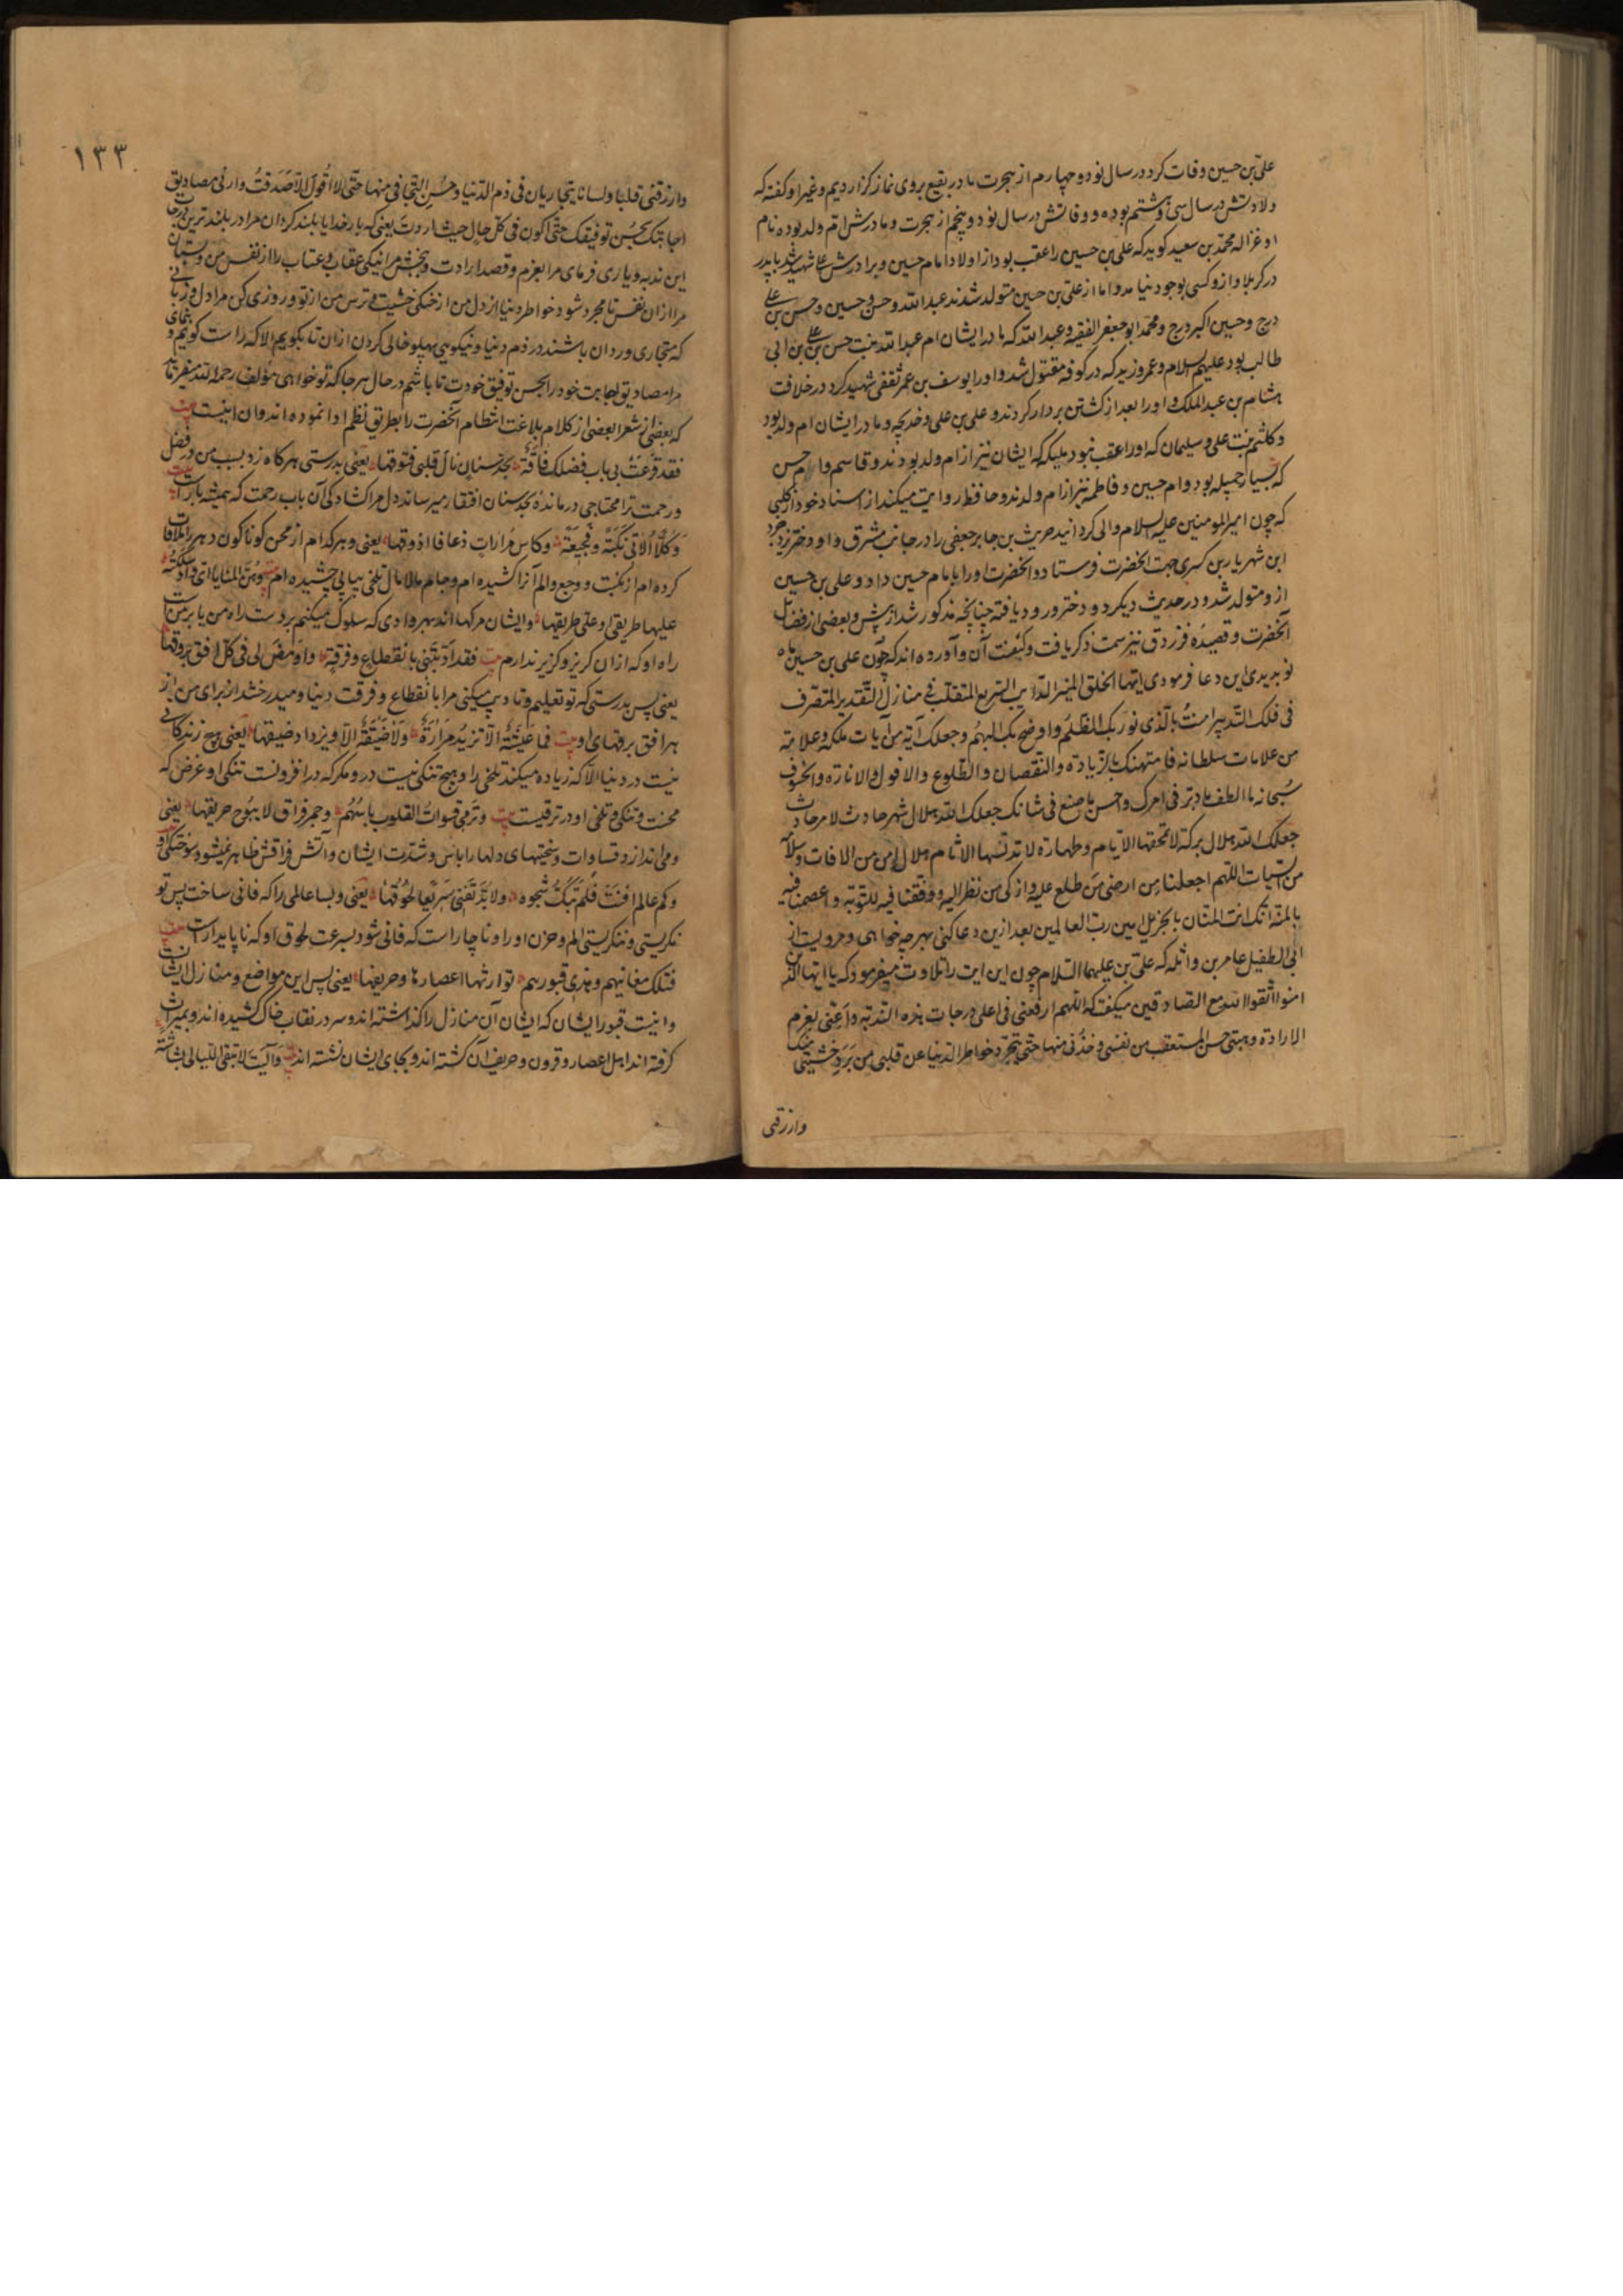 علی بن حسین وفات کرد در سال نود و چهارم از هجرت ما در بقیع بروی نماز گزاردیم و غیر او گفته که
ولادتش در سال سی و هشتم بوده و وفاتش در سال نود و پنجم از هجرت و مادرش ام ولد بوده نام
او غزاله محمد بن سعید کوید که علی بن حسین را عقب بود از اولاد امام حسین و برادرش علی شهید شد با پدر
در کربلا و از و کسی بوجود نیامد و اما از علی بن حسین متولد شدند عبد الله و حسن و حسین و حسن بن علی
درج و حسین اکبر درج و محمد ابو جعفر الفقیه و عبد الله که مادر ایشان ام عبد الله بنت حسن بن علی بن ابی
طالب بود علیهم السلام و عمر و زید که در کوفه مقتول شد و او را یوسف بن عمر ثقفی شهید کرد در خلافت
هشام بن عبد الملک و او را بعد از کشتن بردار کردند و علی بن علی و خدیجه و مادر ایشان ام ولد بود
و کلثم بنت علی و سلیمان که او را عقب نبود و ملیکه که ایشان نیز از ام ولد بودند و قاسم و ام حسن
که بسیار جمیله بود و ام حسین و فاطمه نیز از ام ولدند و حافظ روایت میکند از اسناد خود از کلبی
که چون امیر المومنین علیه السلام والی کردانید حریث بن جابر جعفی را در جانب مشرق و او دو دختر یزدجرد
ابن شهریار بن کسری جهت آنحضرت فرستاد و آنحضرت او را با امام حسین داد و علی بن حسین
از و متولد شد و در حدیث دیکر دو دختر ورود یافته چنانچه مذکور شد از پیش و بعضی از فضایل
آنحضرت و قصیده فرزدق نیز سمت ذکر یافت و کیفیت آن و آورده اند که چون علی بن حسین ماه
نو بدیدی این دعا فرمودی ایتها الخلق المنیر الدایب السریع المتقلب فی منازل التقدیر المتصرف
فی فلک التدبیر امنت بالذی نور بک الظلم و اوضح بک البهم و جعلک آیة من آیات ملکه و علامة
من علامات سلطانه فامتهنک بالزیادة والنقصان والطلوع والافول والانارة والخسوف
سبحانه ما الطف ما دبر فی امرک و احسن ما صنع فی شانک جعلک الله هلال شهر حادث لامر حادث
جعلک الله هلال برکة لا تمحقها الایام و طهارة لا تدنسها الاثام هلال امن من الافات و سلامة
من السیات اللهم اجعلنا من ارضی من طلع علیه و ازکی من نظر الیه و وفقنا فیه للتوبة و اعصمنا فیه
بالمنة انک انت المنان بالجزیل امین رب العالمین بعد ازین دعا کنی بهر چه خواهی و مرویست از
ابی الطفیل عامر بن واثله که علی بن علیهما السلام چون این ایت را تلاوت میفرمود که یا ایها الذین
امنوا اتقوا الله مع الصادقین میکفت که اللهم ارفعنی فی اعلی درجات هذه الندبة و اعنی بعزم
الارادة و هبنی حسن المستعقب من نفسی و خذنی منها حتی تتجرد خواطر الدنیا عن قلبی من برد خشیتی منک
وارزقنی
١٣٣
وارزقنی قلبا و لسانا یتجاریان فی ذم الدنیا و حسن التجافی منها حتی لا اقول الا صدقت و ارنی مصادیق
اجابتک بحسن توفیقک حتی اکون فی کل حال حیث اردت یعنی که بار خدایا بلند کردان مرا در بلند ترین درجات
این ندبه و یاری فرمای مرا بعزم و قصد ارادت و ببخش مرا نیکی عقاب و عتاب را از نفس من و بستان
مرا از ان نفس تا مجرد شود خواطر دنیا از دل من از خنکی خشیت و ترس من از تو و روزی کن مرا دل و زبانی
که متجاری و ردان باشند در ذم دنیا و نیکویی پهلو خالی کردن از ان تا نکویم الا که راست کویم و بنمای
مرا مصادیق اجابت خود را بحسن توفیق خودت تا باشم در حال هر جا که تو خواهی مؤلف رحمه الله میفرماید
که بعضی از شعرا بعضی از کلام بلاغت انتظام آنحضرت را بطریق نظم ادا نموده اند و ان اینست بیت
فقد قرعت بی باب فضلک فاقة بحد سنان نال قلبی فتوقها یعنی بدرستی هر کاه زد بسبب من در فضل
و رحمت ترا محتاجی درمانده بحد سنان افتقار میرساند دل مرا کشادکی آن باب رحمت که همیشه باز است بیت
و کلا الاقی نکبة و فجیعة و کاس مرارات ذعافا اذوقها یعنی و هر کدام از محن کوناکون دهر را ملاقات
کرده ام از نکبت و وجع و الم آنرا کشیده ام و جام مالامال تلخی پیاپی چشیده ام بیت و هن المنایا ای واد سلکته
علیها طریقی او علی طریقها و ایشان مرکها اند بهر وادی که سلوک میکنم بر وست راه من یا بر من است
راه او که از ان کریز و کزیر ندارم بیت فقد آذنتنی بانقطاع و فرقة و اومض لی فی کل افق بروقها
یعنی پس بدرستی که تو تعلیم و تادیب میکنی مرا بانقطاع و فرقت دنیا و میدرخشد از برای من از
هر افق برقهای او بیت فما عیشة الا تزید مرارة و لا ضیقة الا و یزداد ضیقها یعنی هیچ زندکانی
نیست در دنیا الا که زیاده میکند تلخی را و هیچ تنکی نیست در و مکر که در افزونست تنکی او غرض که
محنت و تنکی و تلخی او در ترقیست بیت و ترمی قسوات القلوب باسهم و جمر فراق لا یبوح حریقها یعنی
و می اندازد قساوات و سختیهای دلها را باس و شدت ایشان و آتش فراقش ظاهر نمیشود سوختکی او
و کم عالم افنت فلم تبک شجوه و لا بد تفنی سریعا لحوقها یعنی و بسا عالمی را که فانی ساخت پس تو
نکریستی و ننکریستی الم و حزن او را و ناچار است که فانی شود بسرعت لحوق او که ناپایدار است بیت
فتلک مغانیهم و هذی قبورهم توارثها اعصارها و حریقها یعنی پس این مواضع و منازل ایشانست
و اینست قبور ایشان که ایشان آن منازل را کذاشته اند و سر در نقاب خاک کشیده اند و بمیراث
کرفته اند اهل اعصار و قرون و حریف آن کشته اند و بجای ایشان نشسته اند بیت و آلیت لا تبقی اللیالی بشاشة